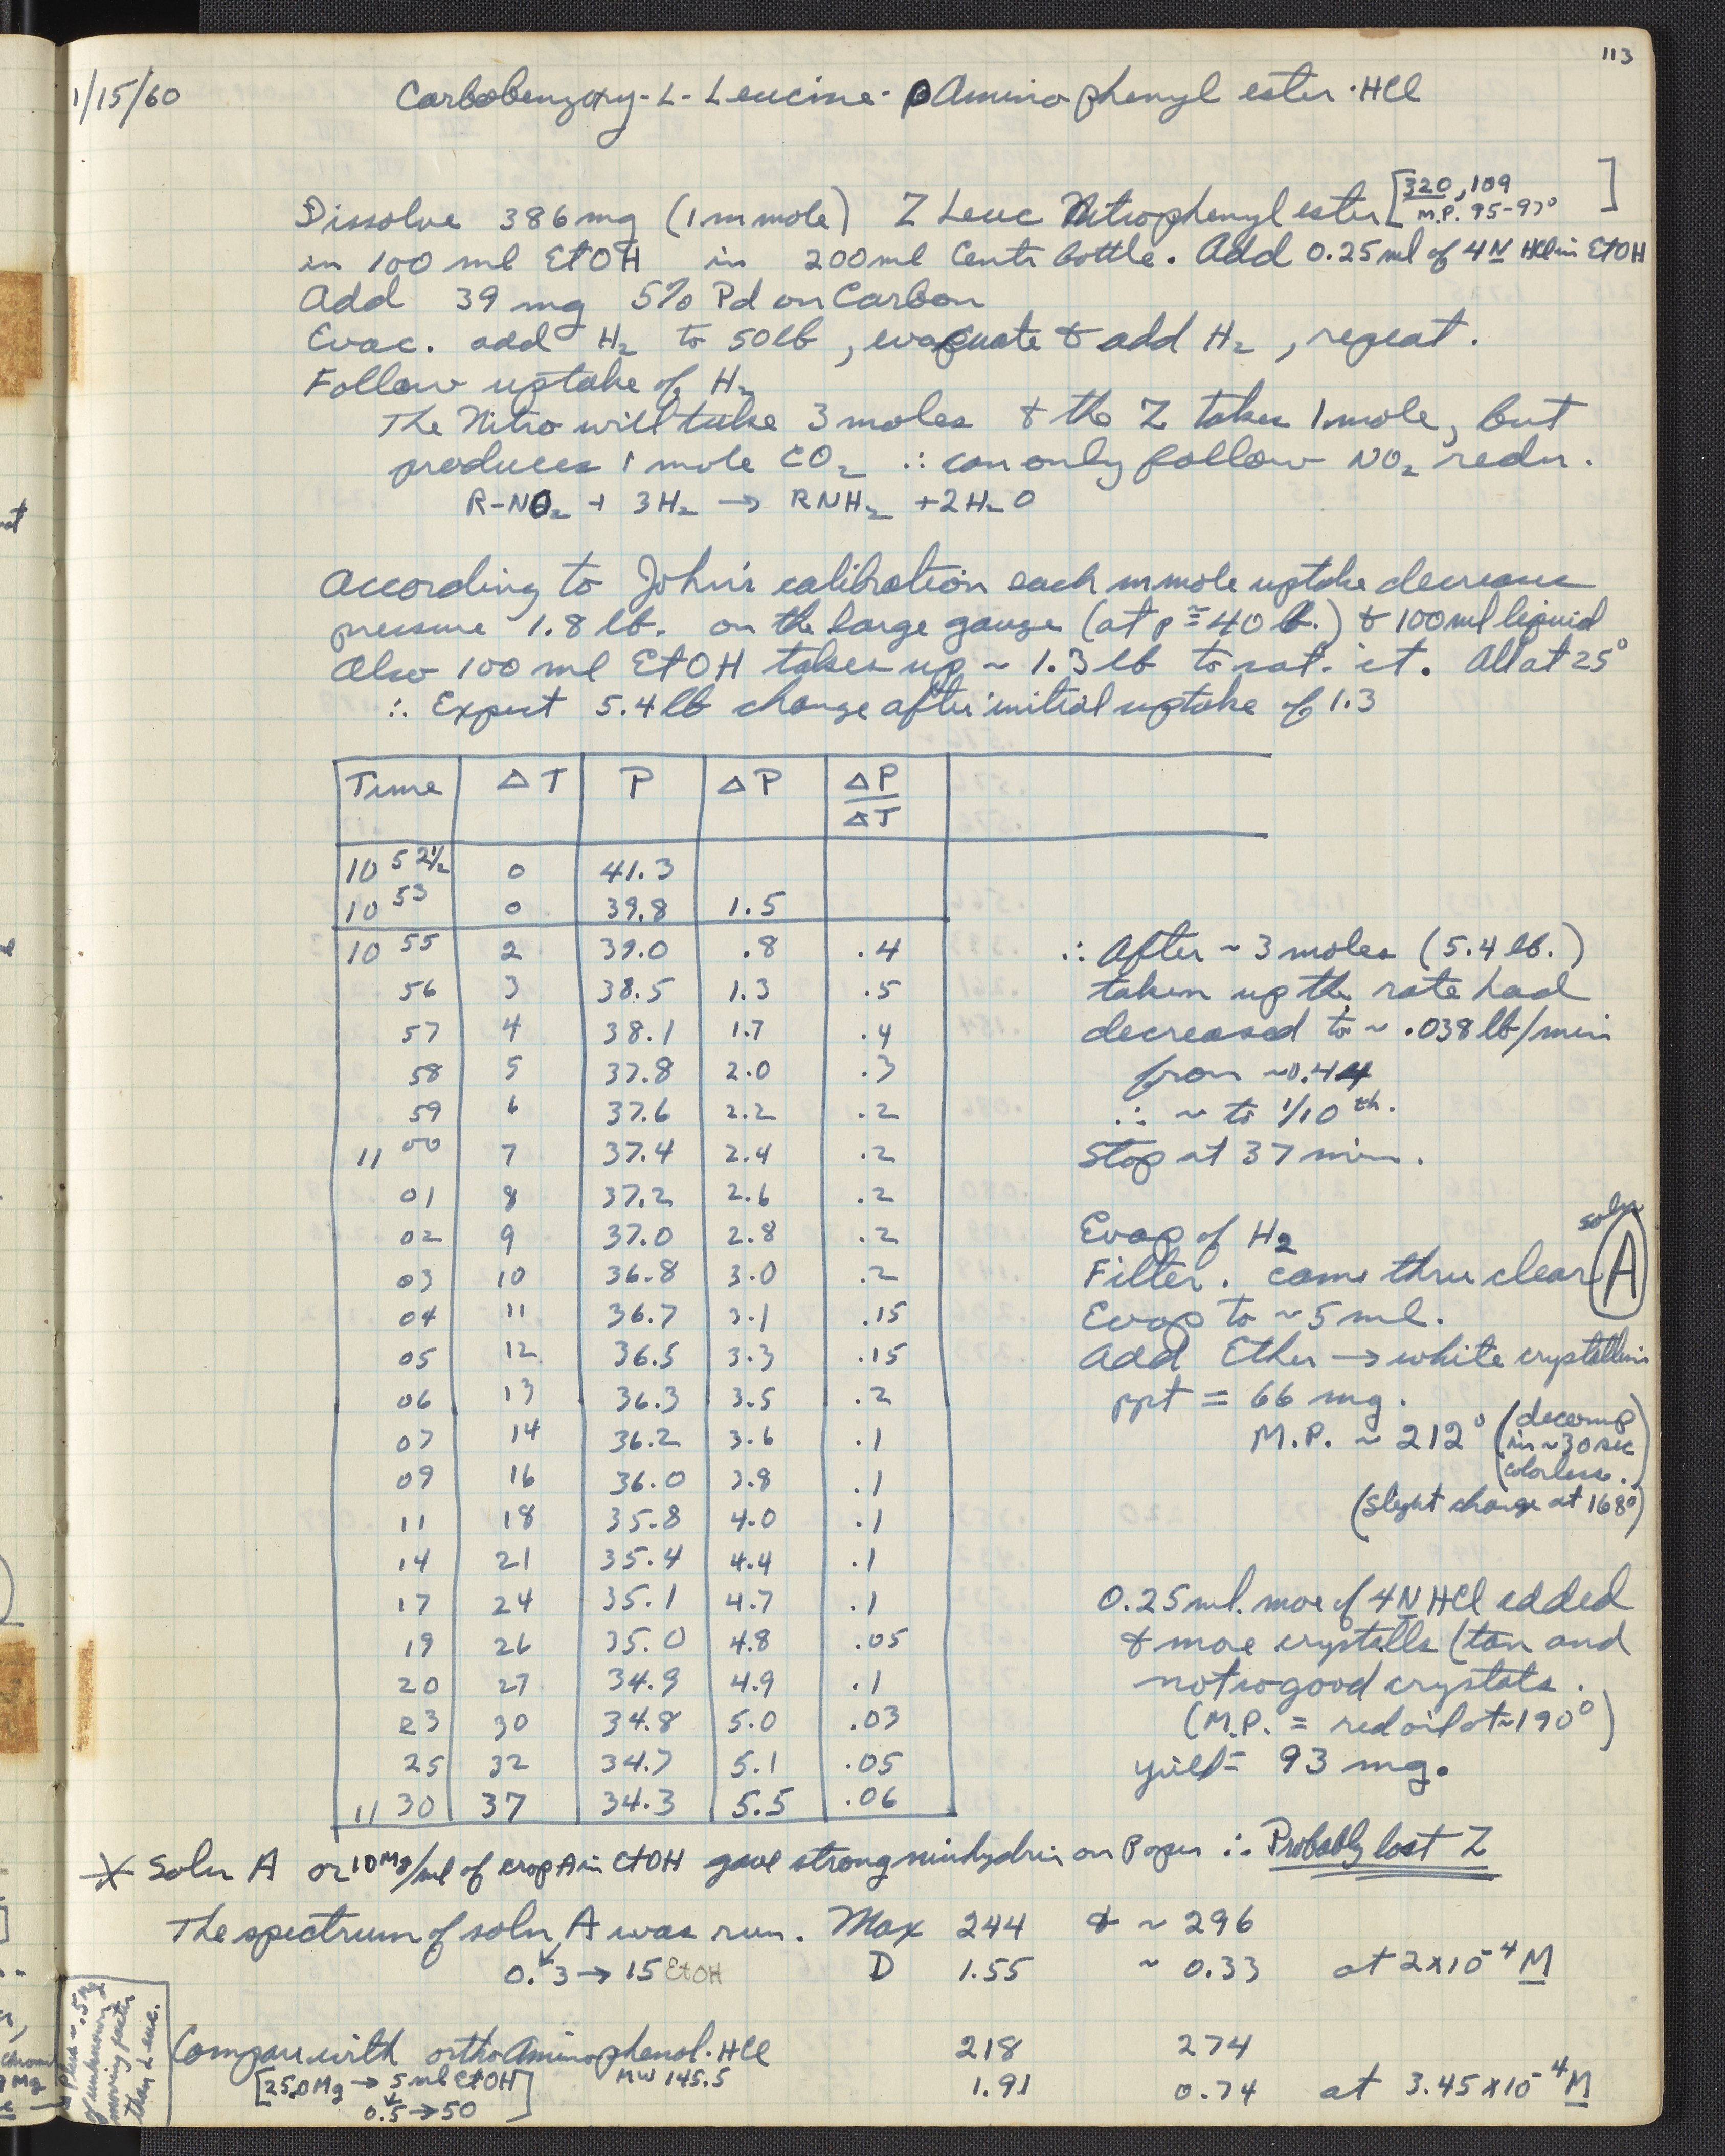 113
1/15/60 Carbobenzoxy-L-Leucine-pAminophenyl ester·HCl
Dissolve 386 mg (1 m mole) Z Leuc Nitrophenyl ester [320, 109
M.P. 95-97°]
in 100 ml EtOH in 200 ml Centr bottle. Add 0.25 ml of 4N HCl in EtOH
Add 39 mg 5% Pd on Carbon
Evac. add H2 to 50 lb, evacuate & add H2, repeat.
Follow uptake of H2
The Nitro will take 3 moles & the Z takes 1 mole, but
produces 1 mole CO2 ∴ can only follow NO2 redn.
R-NO2 + 3H2 → RNH2 + 2H2O
According to John's calibration each m mole uptake decreases
pressure 1.8 lb. on the large gauge (at p ≅ 40 lb.) & 100 ml liquid
Also 100 ml EtOH takes up ~ 1.3 lb to sat. it. All at 25°
∴ Expect 5.4 lb change after initial uptake of 1.3
Time ΔT P ΔP ΔP/ΔT
10 52½ 0 41.3
10 53 0 39.8 1.5
10 55 2 39.0 .8 .4
56 3 38.5 1.3 .5
57 4 38.1 1.7 .4
58 5 37.8 2.0 .3
59 6 37.6 2.2 .2
11 00 7 37.4 2.4 .2
01 8 37.2 2.6 .2
02 9 37.0 2.8 .2
03 10 36.8 3.0 .2
04 11 36.7 3.1 .15
05 12 36.5 3.3 .15
06 13 36.3 3.5 .2
07 14 36.2 3.6 .1
09 16 36.0 3.8 .1
11 18 35.8 4.0 .1
14 21 35.4 4.4 .1
17 24 35.1 4.7 .1
19 26 35.0 4.8 .05
20 27 34.9 4.9 .1
23 30 34.8 5.0 .03
25 32 34.7 5.1 .05
11 30 37 34.3 5.5 .06
∴ After ~ 3 moles (5.4 lb.)
taken up the rate had
decreased to ~ .038 lb/min
from ~0.44
∴ ~ to 1/10 th.
Stop at 37 min.
Evap of H2
Filter. came thru clear soln A
Evap to ~ 5 ml.
Add Ether → white crystalline
ppt = 66 mg.
M.P. ~ 212° (decomp
in ~30 sec
colorless.)
(slight change at 168°)
0.25 ml. more of 4N HCl added
& more crystalls (tan and
not so good crystals.
(M.P. = red oil at ~190°)
yield = 93 mg.
* Soln A or 10 Mg/ml of crop A in EtOH gave strong ninhydrin on Paper ∴ Probably lost Z
The spectrum of soln A was run. Max 244 & ~ 296
0.3 → 15 EtOH D 1.55 ~ 0.33 at 2x10⁻⁴ M
Compare with ortho Aminophenol·HCl 218 274
MW 145.5
[25.0 Mg → 5 ml EtOH 1.91 0.74 at 3.45 x10⁻⁴ M
0.5 → 50]
of unknown
moving faster
than Leuc.